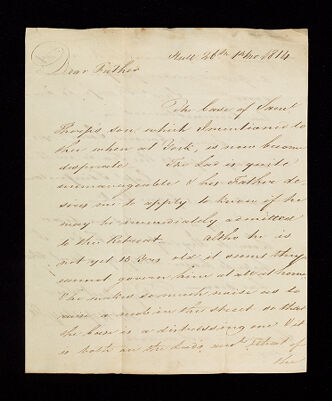 Hull 26th 1st Mo 1814
Dear Father
The Case of Saml
Thorp's son which I mentioned to
thee when at York, is now become
desperate The Lad is quite
unmanageable & his Father de
sires me to apply to know if he
may be immediately admitted
to the Retreat altho he is
not yet 15 Yrs old it seems they
cannot govern him at all at home
& he makes so much noise as to
raise a mob in the street so that
the case is a distressing one & it
is both on the lads acct & that of
the